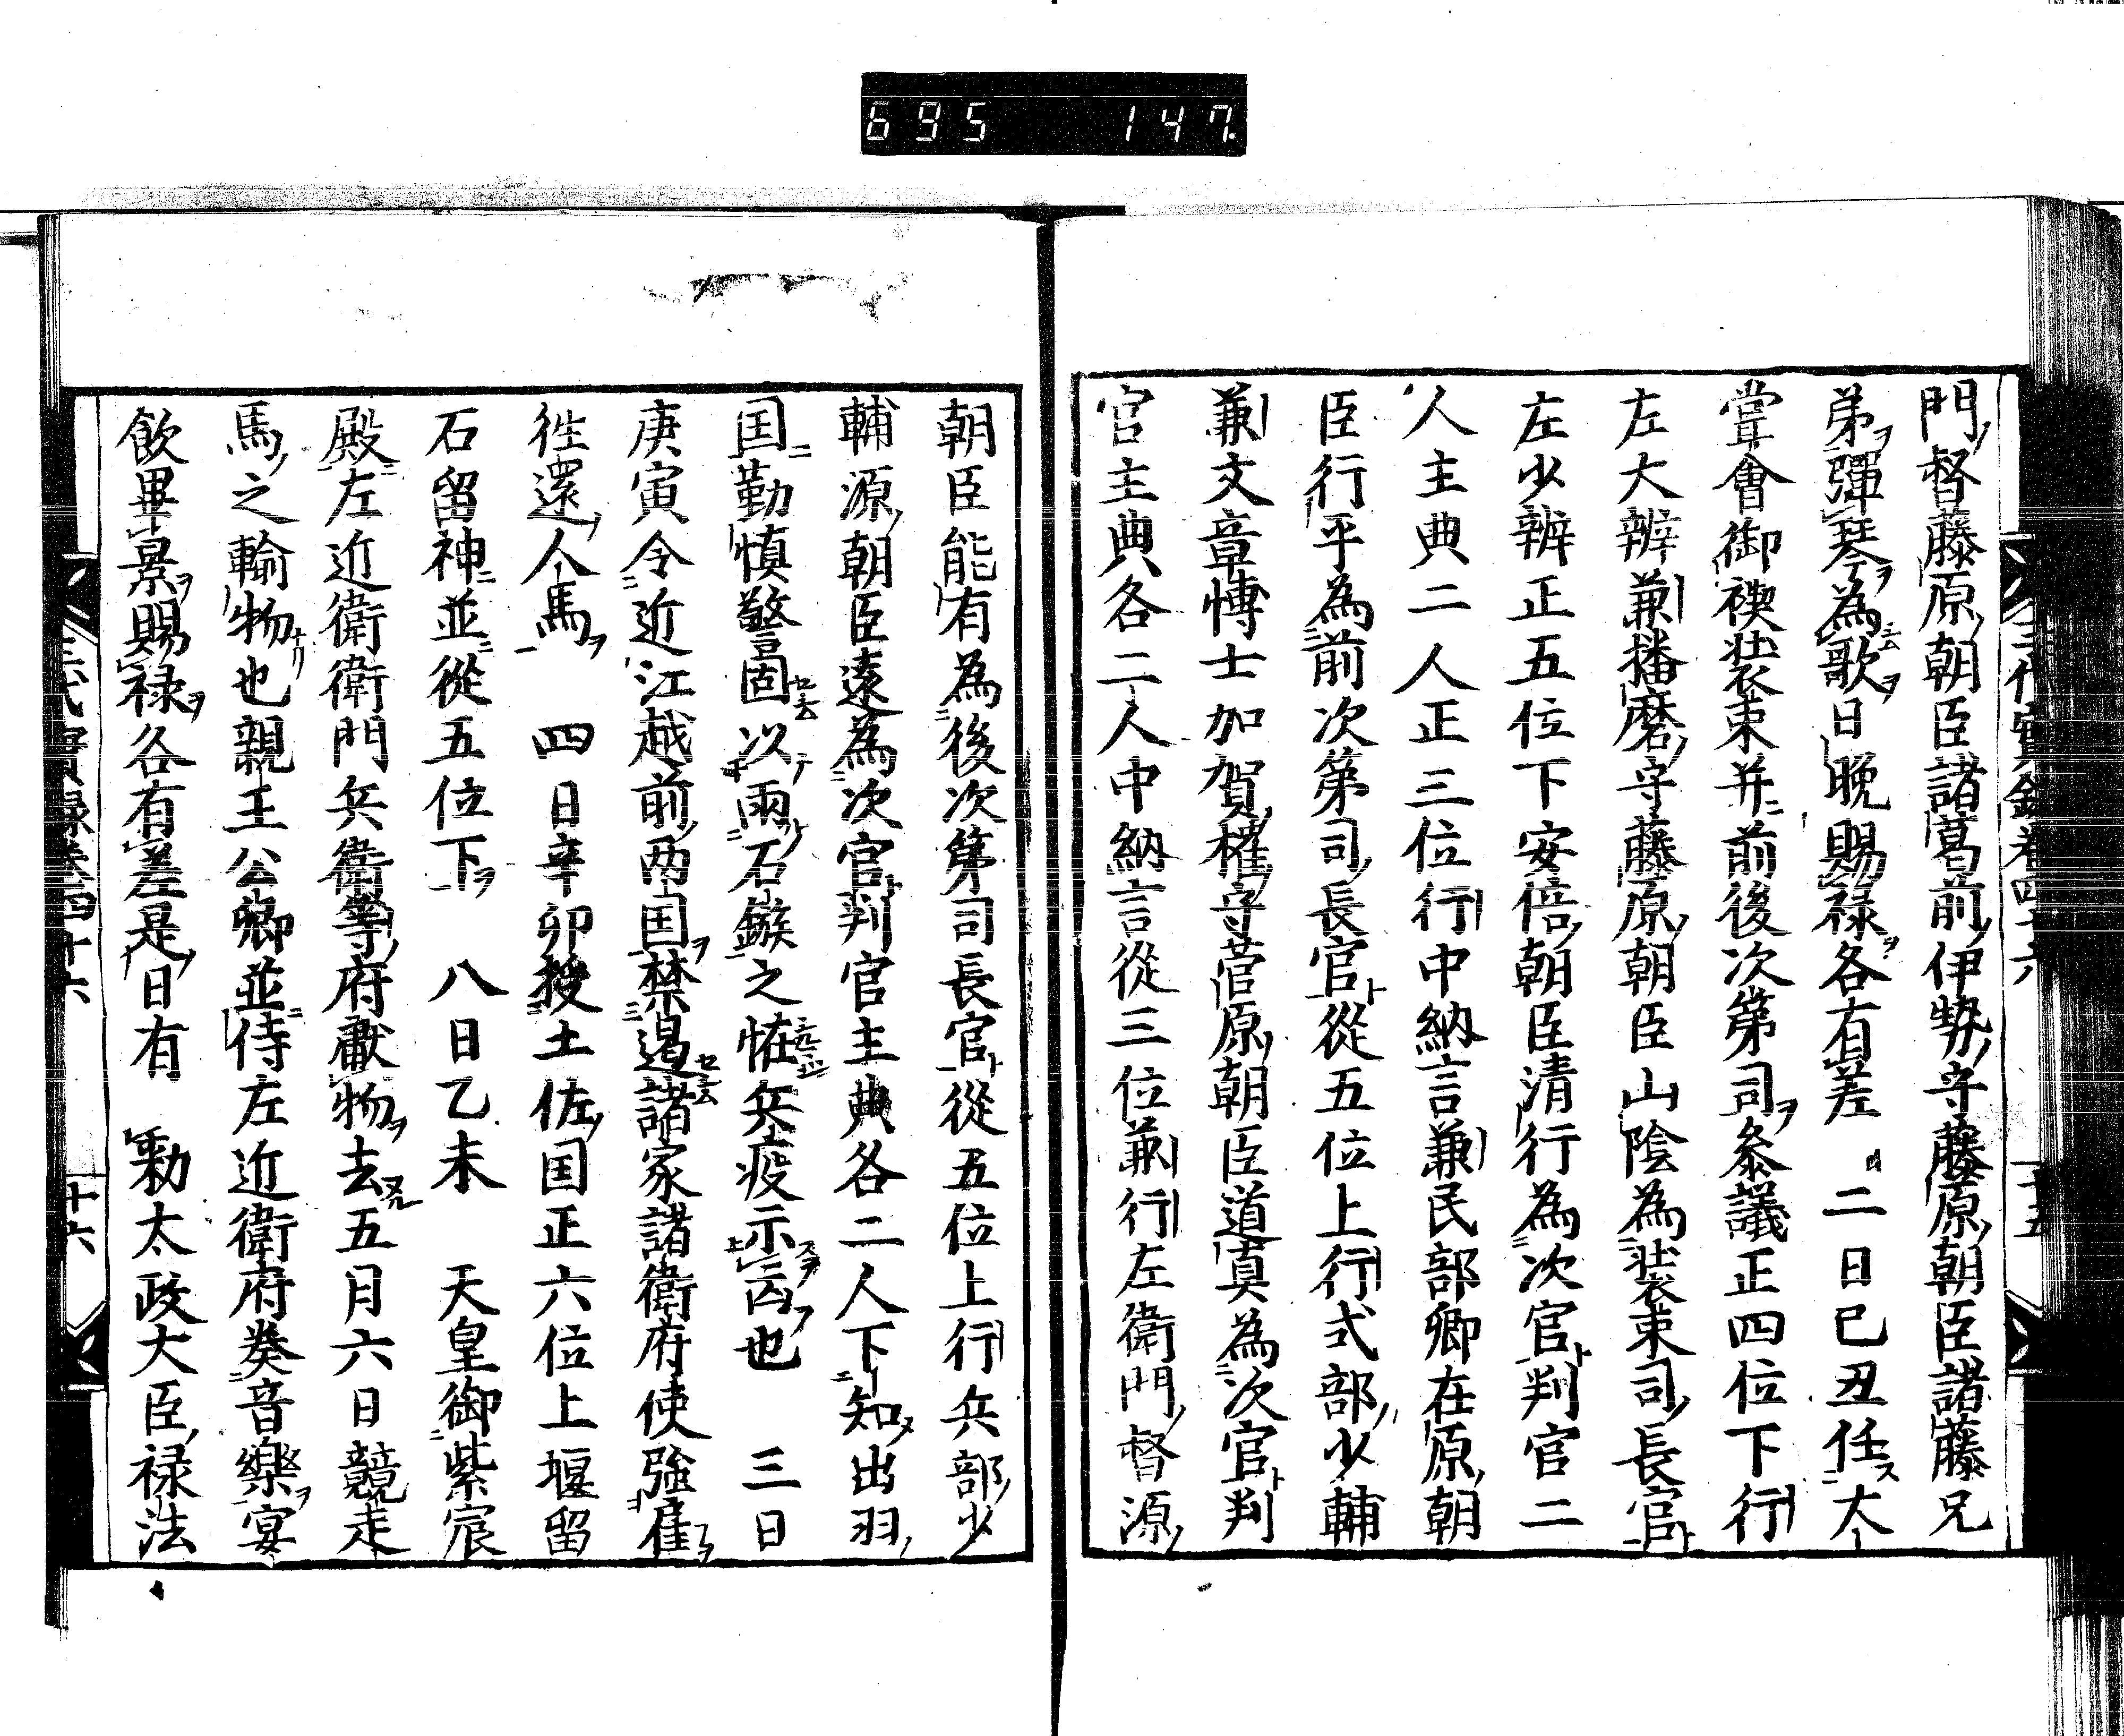 695 147
門督藤原朝臣諸葛前伊勢守藤原朝臣諸藤兄
弟彈琴為歌日晚賜禄各有差 二日己丑任大
甞會御禊装束并前後次第司叅議正四位下行
左大辨兼播磨守藤原朝臣山陰為装束司長官
左少辨正五位下安倍朝臣清行為次官判官二
人主典二人正三位行中納言兼民部卿在原朝
臣行平為前次第司長官從五位上行式部少輔
兼文章愽士加賀權守菅原朝臣道真為次官判
官主典各二人中納言從三位兼行左衛門督源
朝臣能有為後次第司長官從五位上行兵部少
輔源朝臣遠為次官判官主典各二人下知出羽
国勤慎警固以雨石鏃之恠兵疫示凶也 三日
庚寅令近江越前两国禁遏諸家諸衛府使強雇
徃還人馬 四日辛卯授土佐国正六位上堰留
石留神並從五位下 八日乙未 天皇御紫宸
殿左近衛衛門兵衛等府獻物去五月六日競走
馬之輸物也親王公卿並侍左近衛府奏音樂宴
飲畢景賜禄各有差是日有 勅太政大臣禄法
三代實録卷四十六 十六